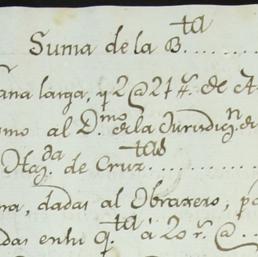 Suma de la B.ta ........
aña larga, q 2 @ 21 tt. de A
smo al D.mo de la Jurudiz.n d
Haz.da de Cruztas ........
na, dadas al Obraxero, po
das entre q.ta á 20 r.s @ ...